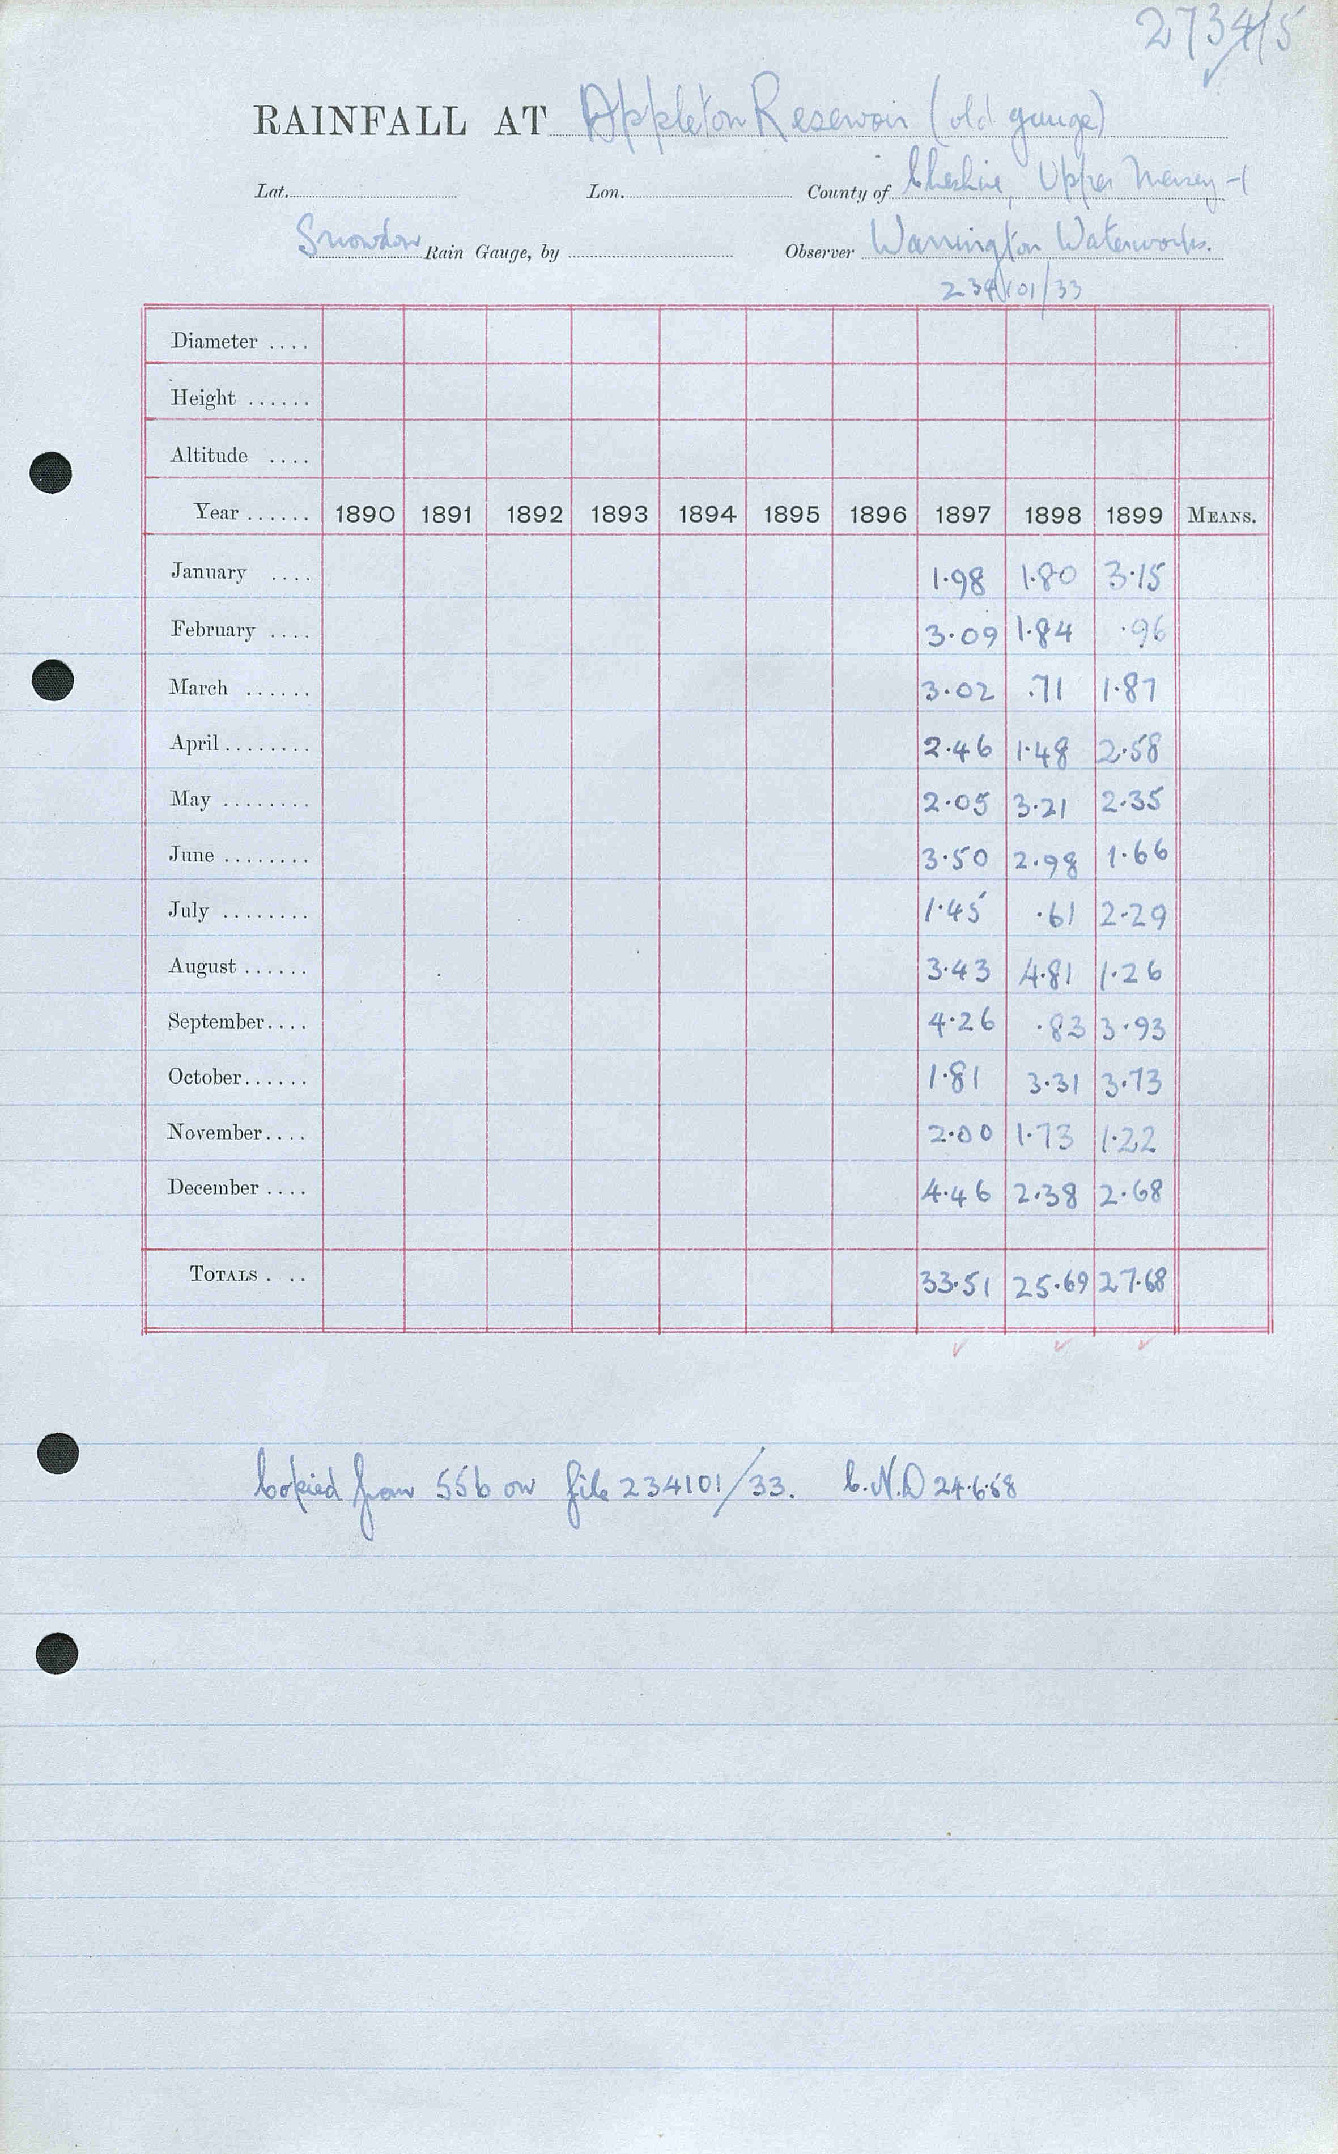 2734/5
RAINFALL AT Appleton Reservoir (old gauge)
Lat. Lon. County of Cheshire, Upper Mersey-1
Snowdon Rain Gauge, by Observer Warrington Waterworks.
234101/33
Diameter ....
Height ......
Altitude ....
Year ...... 1890 1891 1892 1893 1894 1895 1896 1897 1898 1899 MEANS.
January .... 1.98 1.80 3.15
February .... 3.09 1.84 .96
March ...... 3.02 .71 1.87
April ........ 2.46 1.48 2.58
May ........ 2.05 3.21 2.35
June ........ 3.50 2.98 1.66
July ........ 1.45 .61 2.29
August ...... 3.43 4.81 1.26
September.... 4.26 .83 3.93
October...... 1.81 3.31 3.73
November.... 2.00 1.73 1.22
December .... 4.46 2.38 2.68
TOTALS . .. 33.51 25.69 27.68
Copied from 556 on file 234101/33. C.N.D 24.6.58